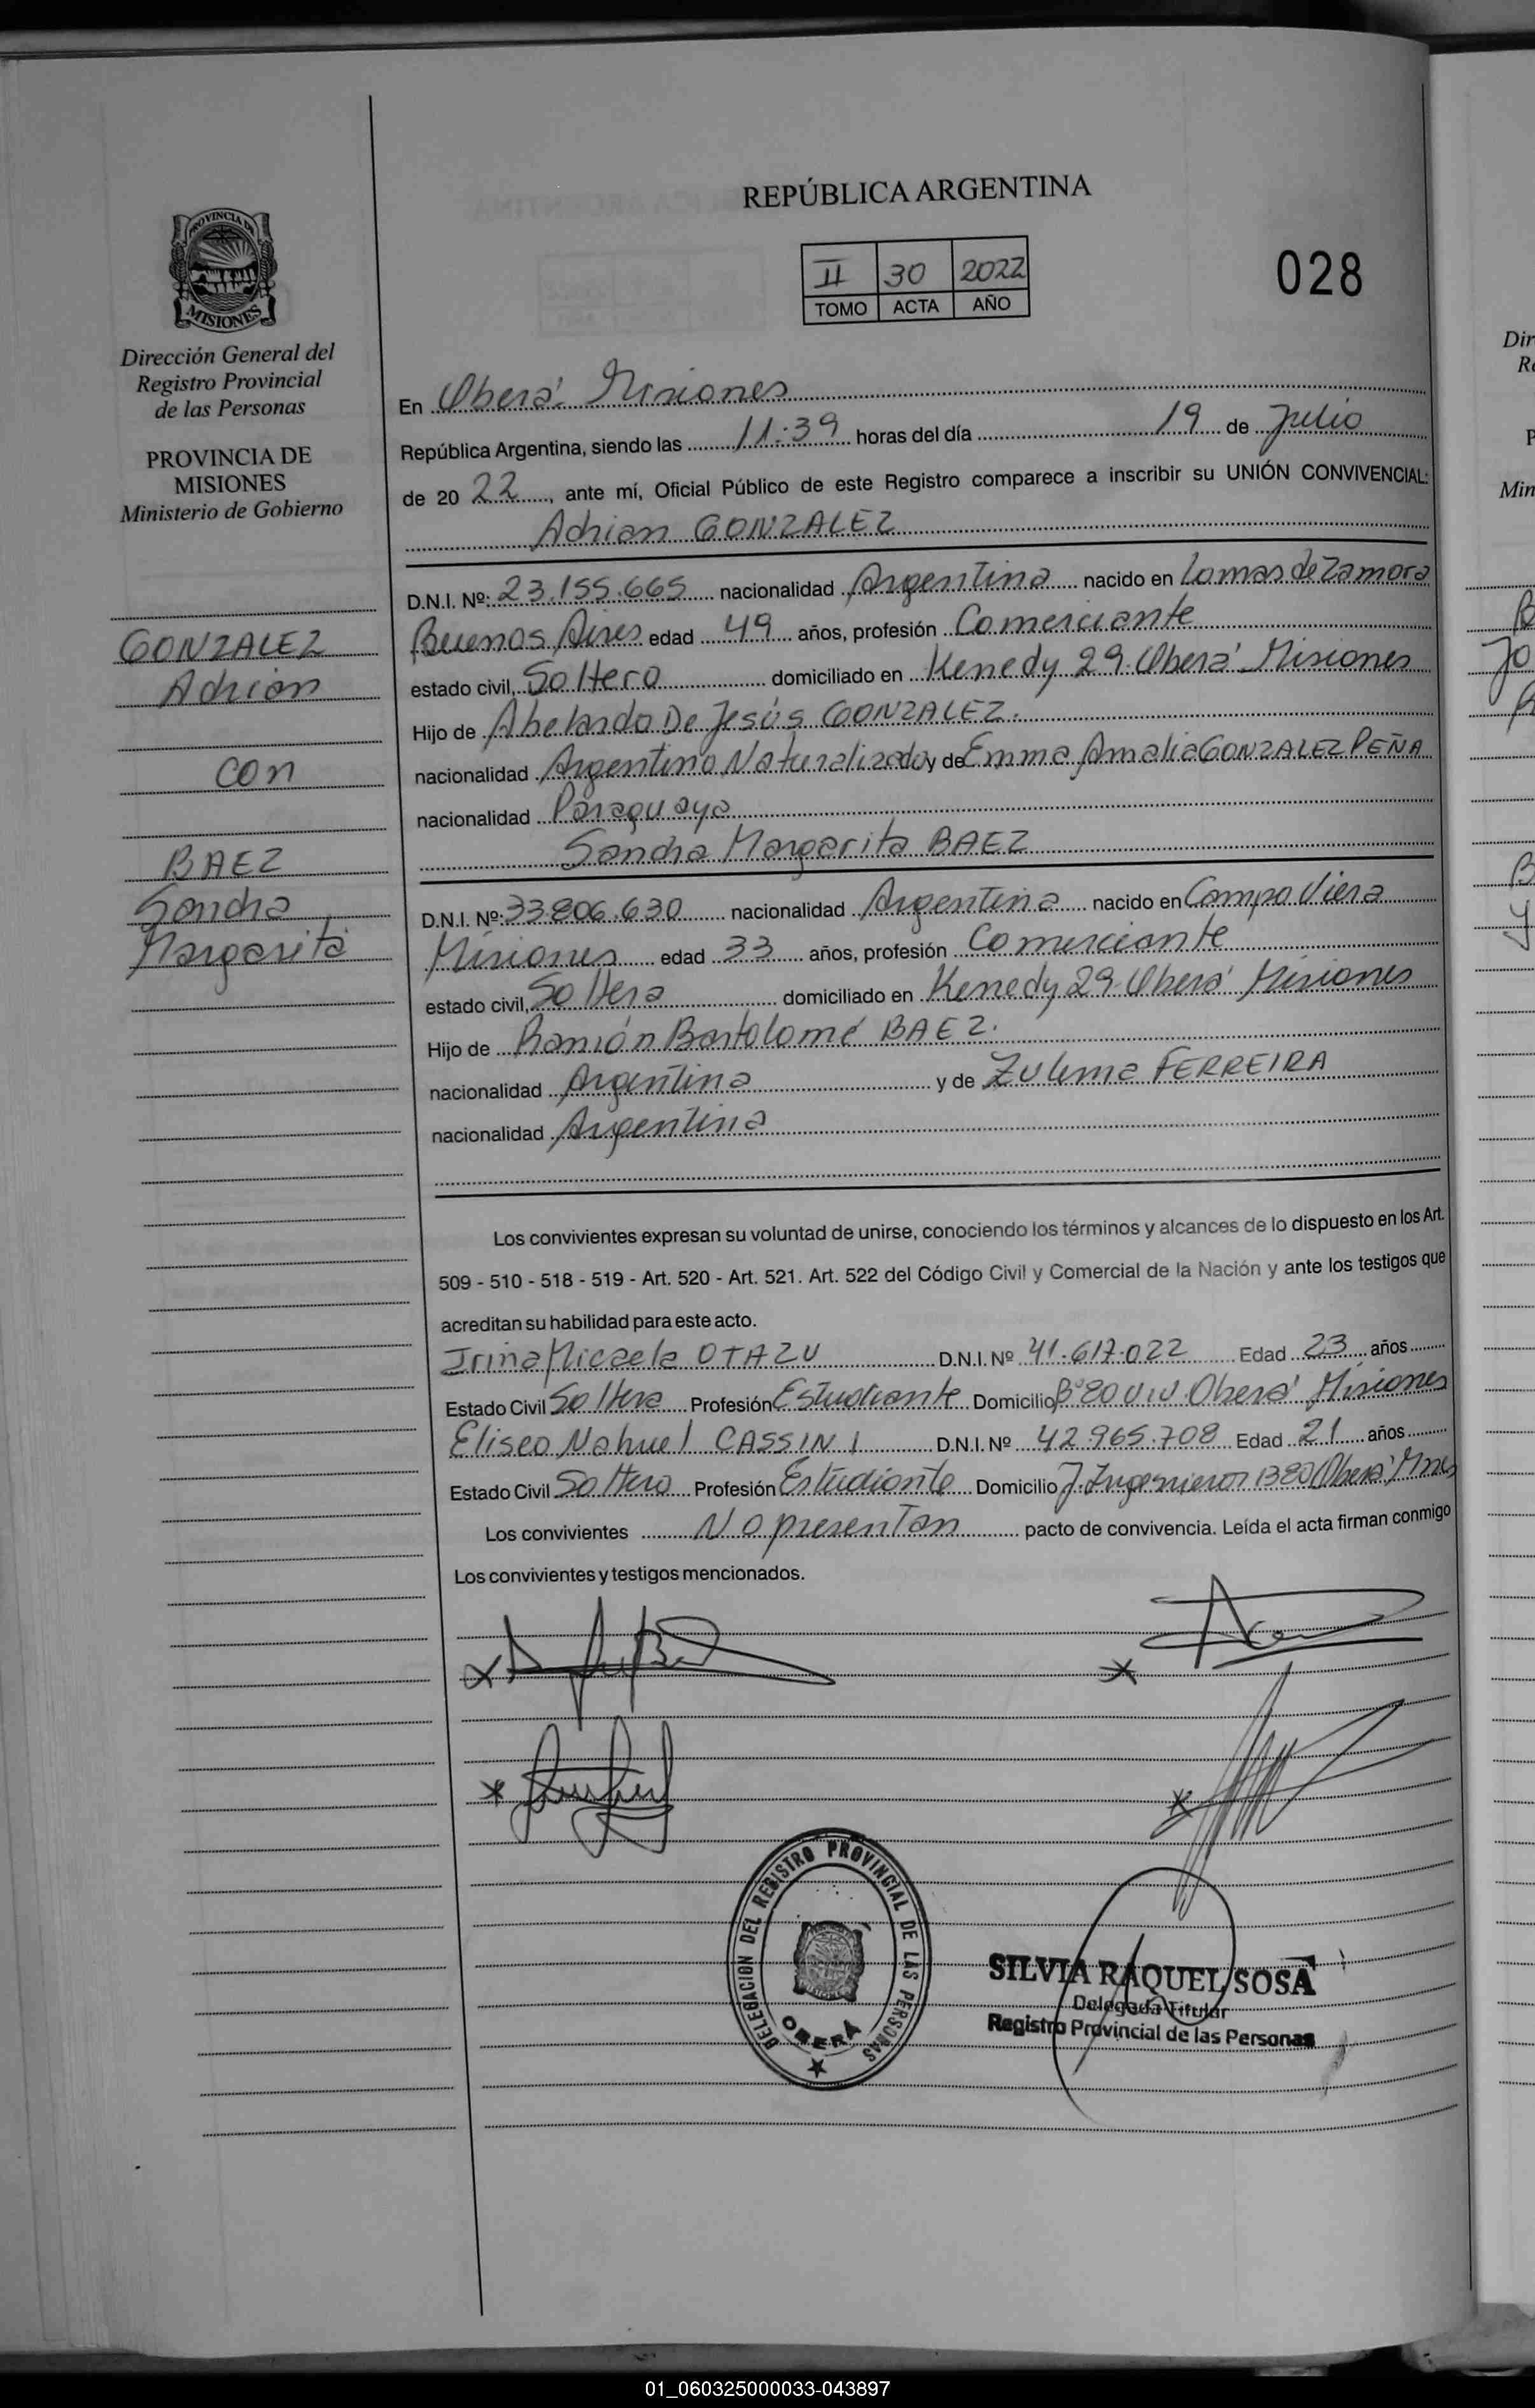 REPÚBLICA ARGENTINA
II 30 2022
TOMO ACTA AÑO
028
PROVINCIA DE
MISIONES
Dirección General del
Registro Provincial
de las Personas
PROVINCIA DE
MISIONES
Ministerio de Gobierno
GONZALEZ
Adrian
con
BAEZ
Sandra
Margarita
En Oberá. Misiones
República Argentina, siendo las 11:39 horas del día 19 de Julio
de 20 22, ante mí, Oficial Público de este Registro comparece a inscribir su UNIÓN CONVIVENCIAL:
Adrian GONZALEZ
D.N.I. Nº: 23.155.665 nacionalidad Argentina nacido en Lomas de Zamora
Buenos Aires edad 49 años, profesión Comerciante
estado civil, Soltero domiciliado en Kenedy 29. Oberá Misiones
Hijo de Abelardo De Jesús GONZALEZ.
nacionalidad Argentino Naturalizado y de Emma Amalia GONZALEZ PEÑA
nacionalidad Paraguaya
Sandra Margarita BAEZ
D.N.I. Nº: 33.806.630 nacionalidad Argentina nacido en Campo Viera
Misiones edad 33 años, profesión Comerciante
estado civil, Soltera domiciliado en Kenedy 29. Oberá Misiones
Hijo de Ramón Bartolomé BAEZ.
nacionalidad Argentina y de Zulema FERREIRA
nacionalidad Argentina
Los convivientes expresan su voluntad de unirse, conociendo los términos y alcances de lo dispuesto en los Art.
509 - 510 - 518 - 519 - Art. 520 - Art. 521. Art. 522 del Código Civil y Comercial de la Nación y ante los testigos que
acreditan su habilidad para este acto.
Irina Micaela OTAZU D.N.I. Nº 41.617.022 Edad 23 años
Estado Civil Soltera Profesión Estudiante Domicilio Bº 80 Viv. Oberá Misiones
Eliseo Nahuel CASSINI D.N.I. Nº 42.965.708 Edad 21 años
Estado Civil Soltero Profesión Estudiante Domicilio J. Ingenieros 1380 Oberá Mnes
Los convivientes No presentan pacto de convivencia. Leída el acta firman conmigo
Los convivientes y testigos mencionados.
DELEGACION DEL REGISTRO PROVINCIAL DE LAS PERSONAS
OBERÁ
SILVIA RAQUEL SOSA
Delegada Titular
Registro Provincial de las Personas
01_060325000033-043897